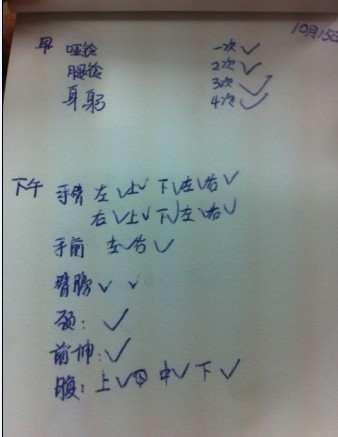 10月15日
早 哑铃 一次✓
腿铃 2次✓
身躬 3次✓
4次✓
下午 手臂 左✓上✓下✓左✓右✓
右✓上✓下✓左✓右✓
手前 左✓右✓
臂膀✓ ✓
颈：✓
前伸：✓
腹：上✓中✓下✓